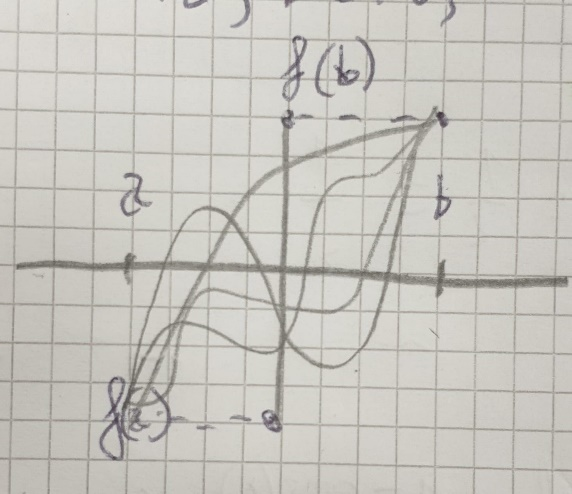 f(b)
a
b
f(a)